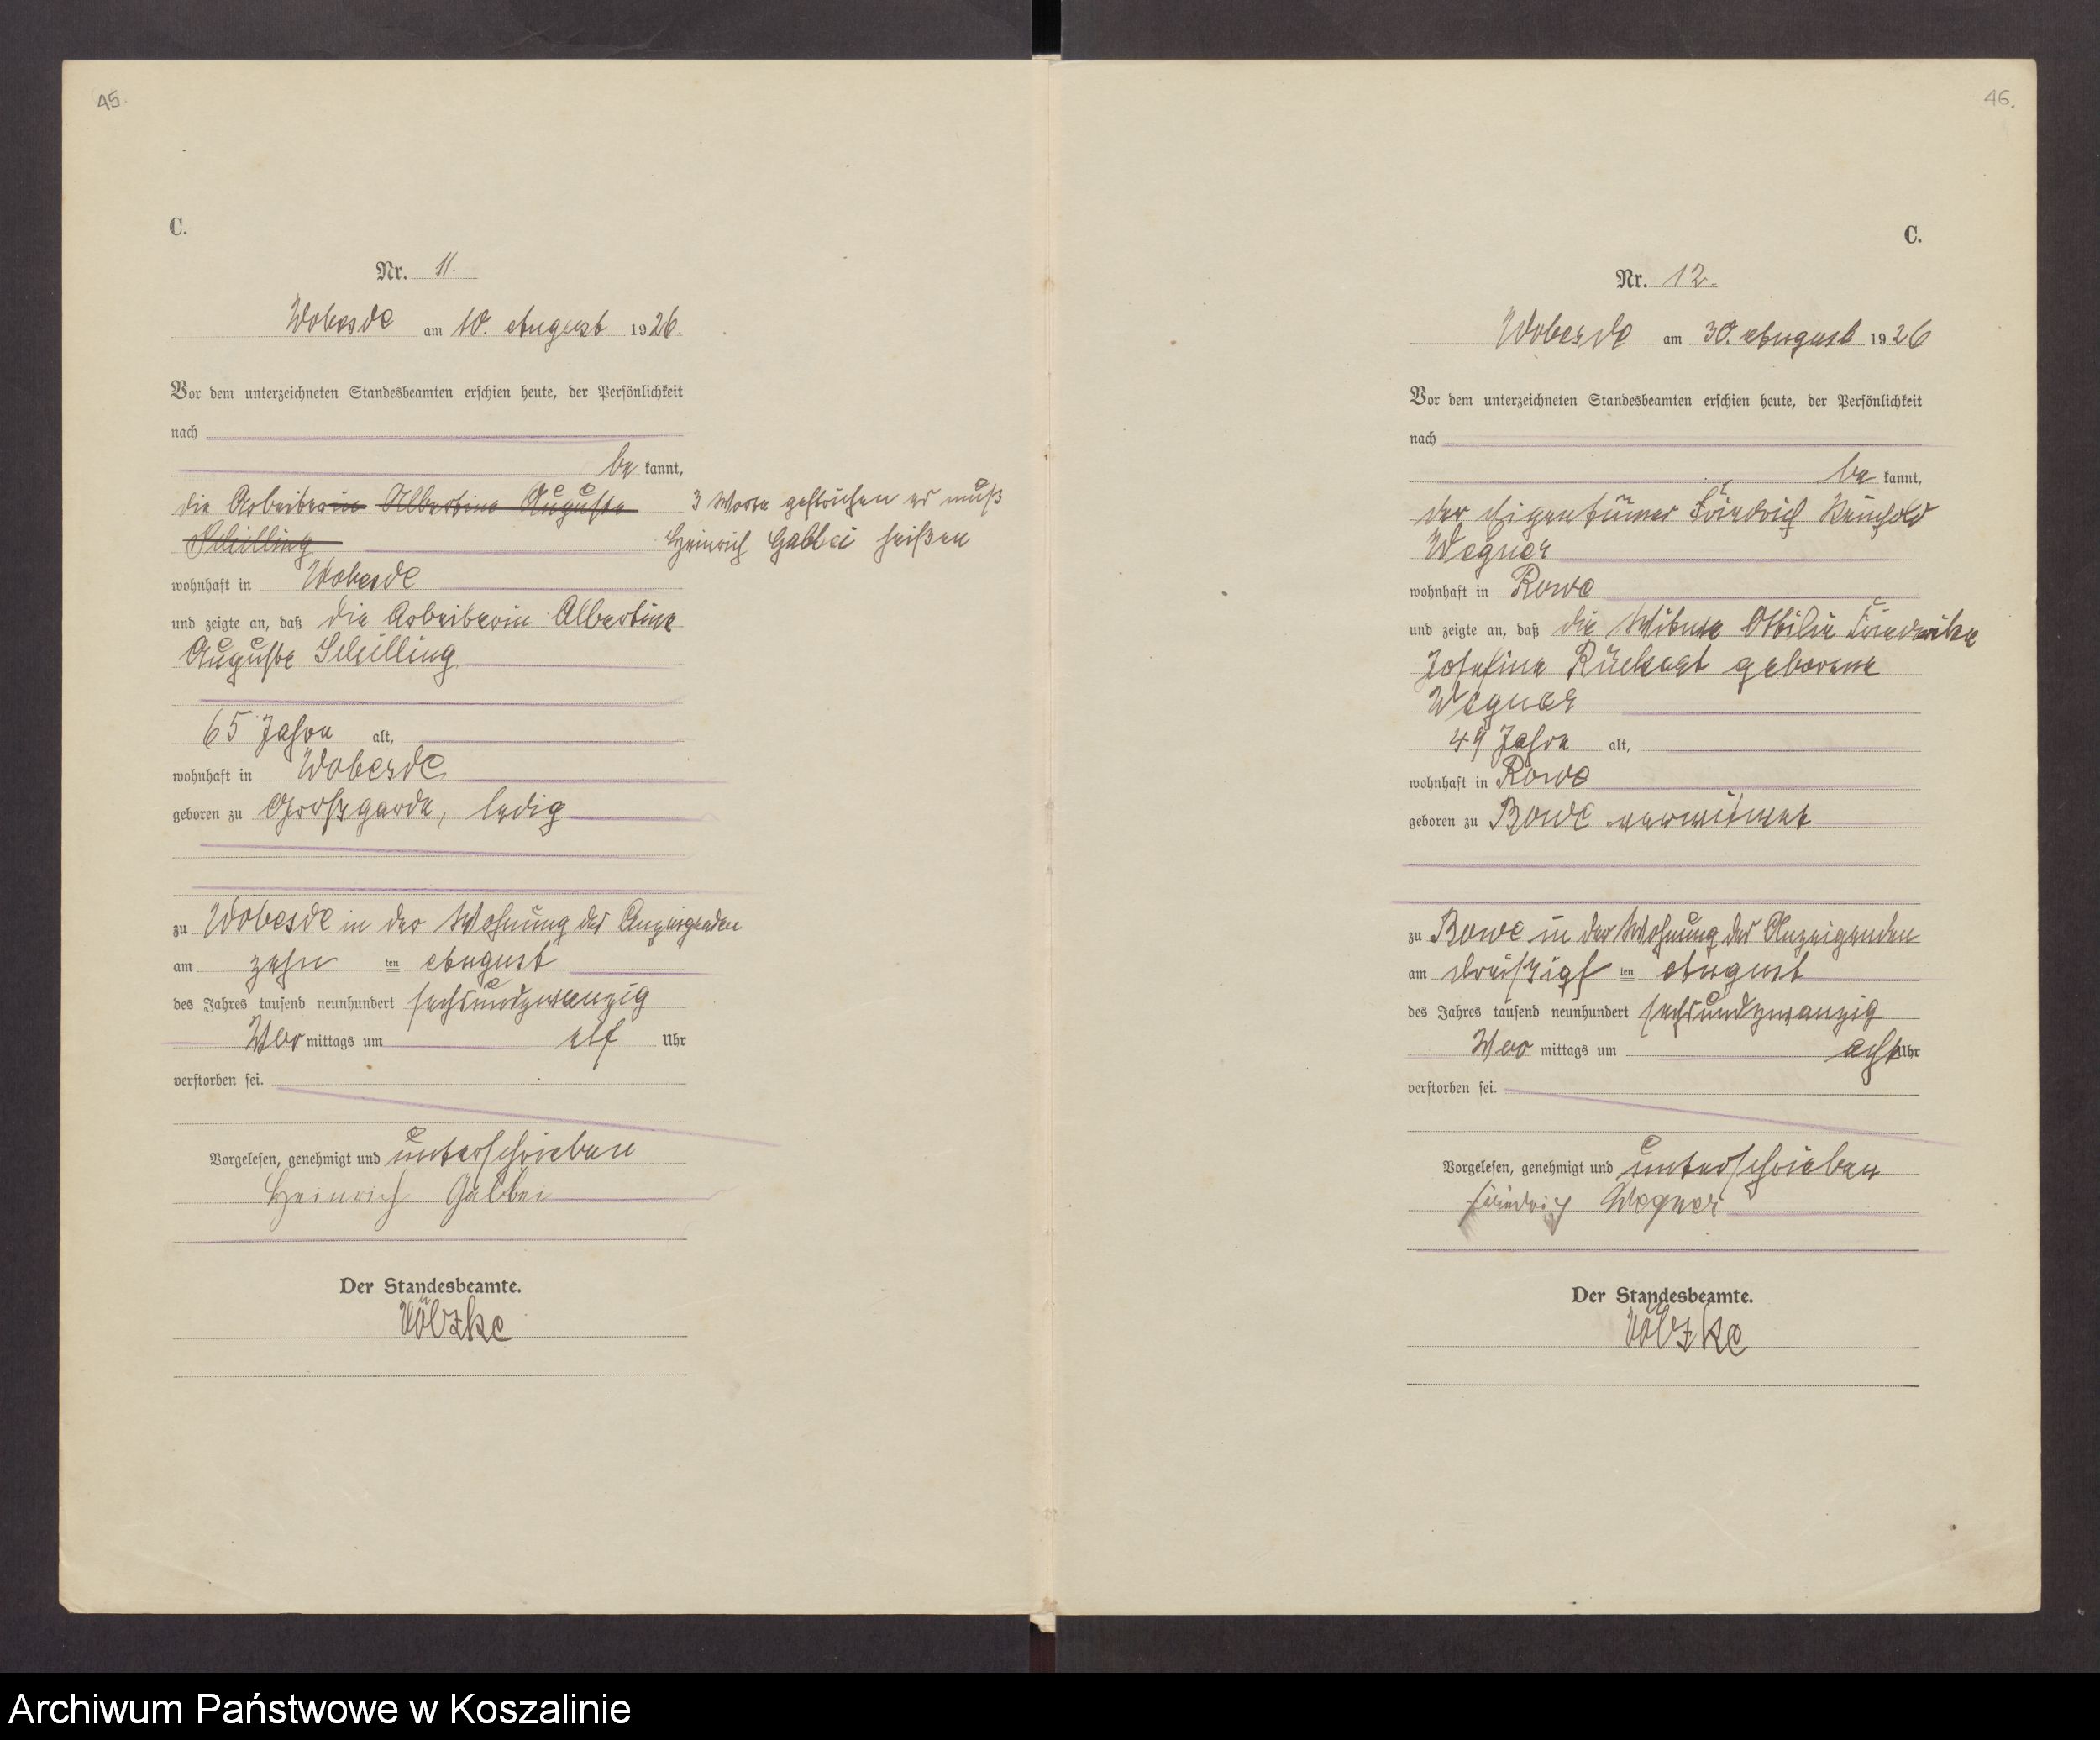 45.
C.
Nr. 11.
Wobesde am 10. August 1926.
Vor dem unterzeichneten Standesbeamten erschien heute, der Persönlichkeit
nach
be kannt,
die Arbeiterin Albertine Auguste
Schilling
3 Worte gestrichen es muß
Heinrich Gabbei heißen
wohnhaft in Wobesde
und zeigte an, daß die Arbeiterin Albertine
Auguste Schilling
65 Jahre alt,
wohnhaft in Wobesde
geboren zu Großgarde, ledig
zu Wobesde in der Wohnung des Anzeigenden
am zehn ten August
des Jahres tausend neunhundert sechsundzwanzig
Vor mittags um elf Uhr
verstorben sei.
Vorgelesen, genehmigt und unterschrieben
Heinrich Gabbei
Der Standesbeamte.
Völzke
46.
C.
Nr. 12.
Wobesde am 30. August 1926
Vor dem unterzeichneten Standesbeamten erschien heute, der Persönlichkeit
nach
be kannt,
der Eigentümer Friedrich Reinhold
Wegner
wohnhaft in Rowe
und zeigte an, daß die Witwe Ottilie Friederike
Josefine Rückert geborene
Wegner
49 Jahre alt,
wohnhaft in Rowe
geboren zu Rowe verwitwet
zu Rowe in der Wohnung des Anzeigenden
am dreißigs ten August
des Jahres tausend neunhundert sechsundzwanzig
Vor mittags um acht Uhr
verstorben sei.
Vorgelesen, genehmigt und unterschrieben
Friedrich Wegner
Der Standesbeamte.
Völzke
Archiwum Państwowe w Koszalinie